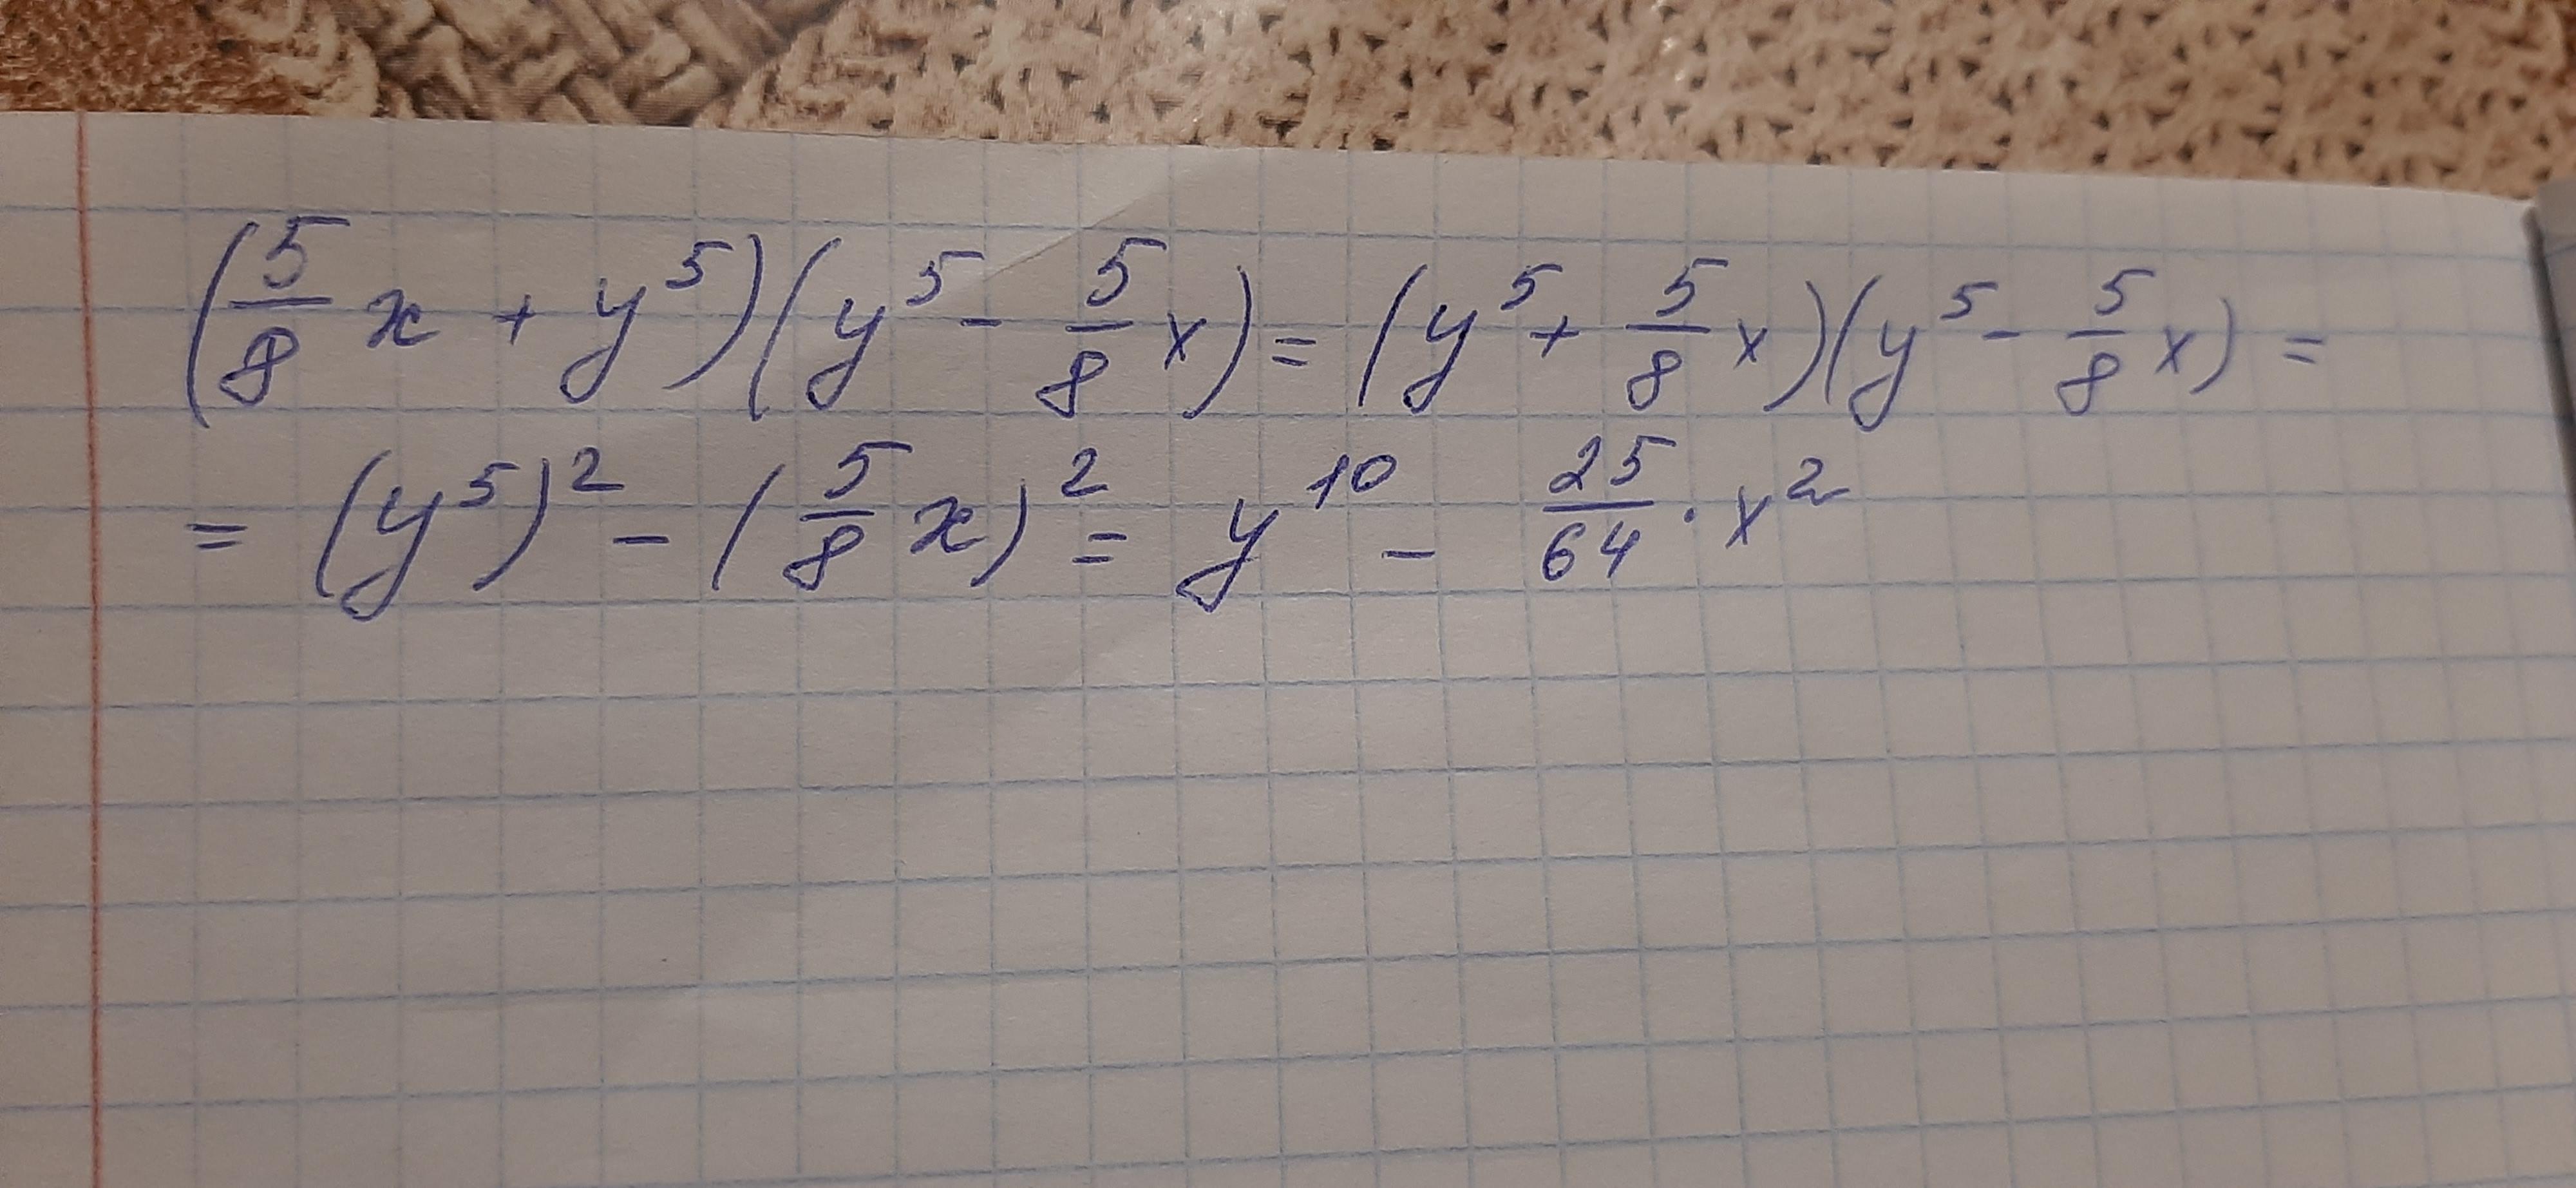 (5/8 x + y^5)(y^5 - 5/8 x) = (y^5 + 5/8 x)(y^5 - 5/8 x) =
= (y^5)^2 - (5/8 x)^2 = y^10 - 25/64 · x^2